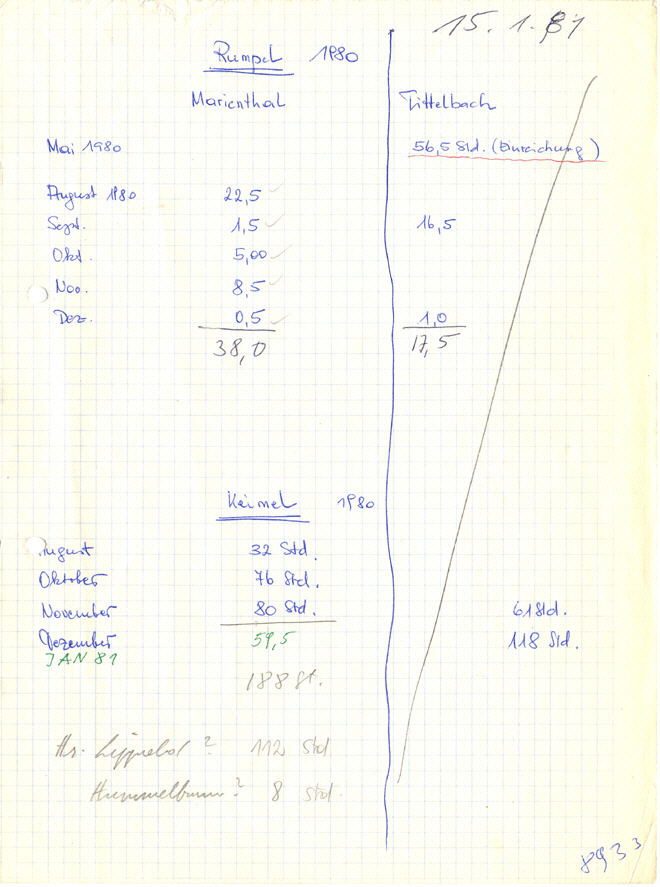 15. 1. 81
Rumpel 1980
Marienthal Tittelbach
Mai 1980 56,5 Std. (Einreichung)
August 1980 22,5
Sept. 1,5 16,5
Okt. 5,00
Nov. 8,5
Dez. 0,5 1,0
38,0 17,5
Keimel 1980
August 32 Std.
Oktober 76 Std.
November 80 Std. 61 Std.
Dezember 59,5 118 Std.
JAN 81
188 St.
Hr. ? 112 Std
? 8 Std.
8933